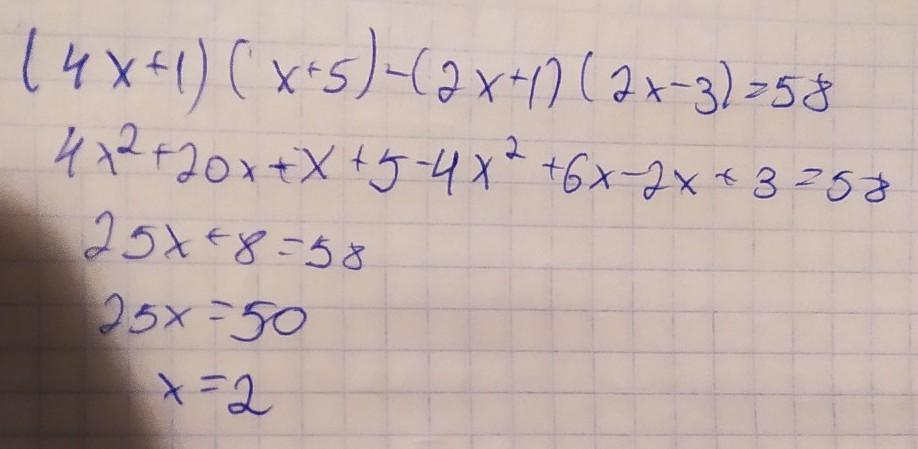 (4x+1)(x+5)-(2x+1)(2x-3)=58
4x²+20x+x+5-4x²+6x-2x+3=58
25x+8=58
25x=50
x=2